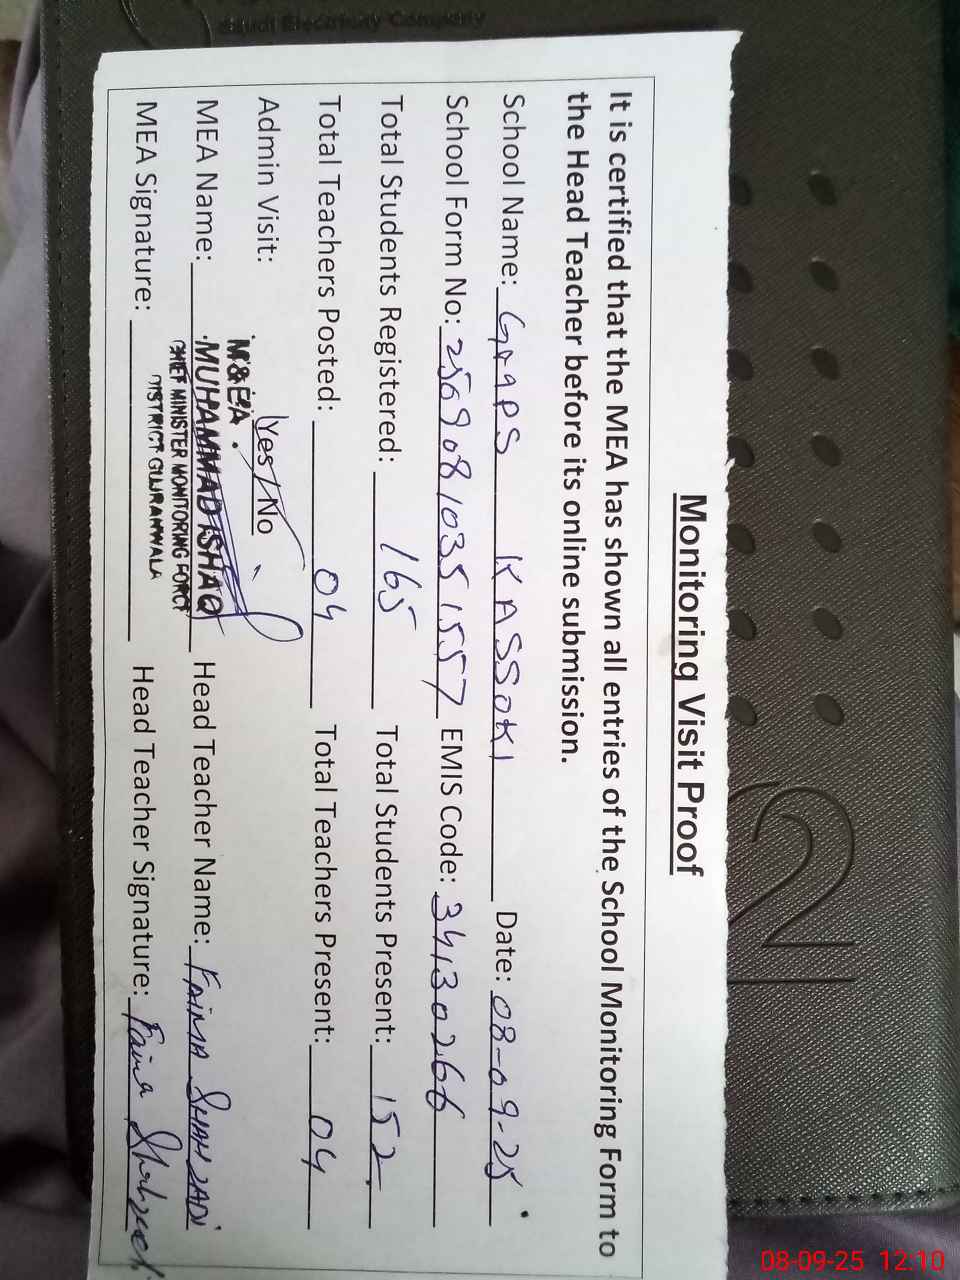 Saudi Electricity Company
Monitoring Visit Proof
It is certified that the MEA has shown all entries of the School Monitoring Form to
the Head Teacher before its online submission.
School Name: KASSOKI Date: 08-09-25
School Form No: 25690810351557 EMIS Code: 34130266
Total Students Registered: 165 Total Students Present: 152
Total Teachers Posted: 04 Total Teachers Present: 04
Admin Visit: Yes / No
M&EA
MEA Name: MUHAMMAD ISHAQ Head Teacher Name: SHAHZADI
CHIEF MINISTER MONITORING FORCE
DISTRICT GUJRANWALA
MEA Signature: Head Teacher Signature:
08-09-25 12:10